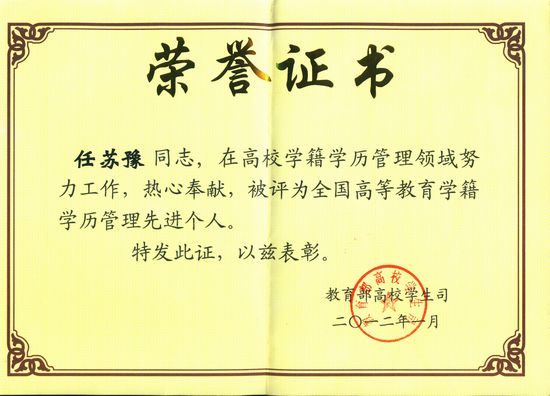 荣誉证书
任苏豫同志，在高校学籍学历管理领域努
力工作，热心奉献，被评为全国高等教育学籍
学历管理先进个人。
特发此证，以兹表彰。
教育部高校学生司
二〇一二年一月
教育部高校学生司